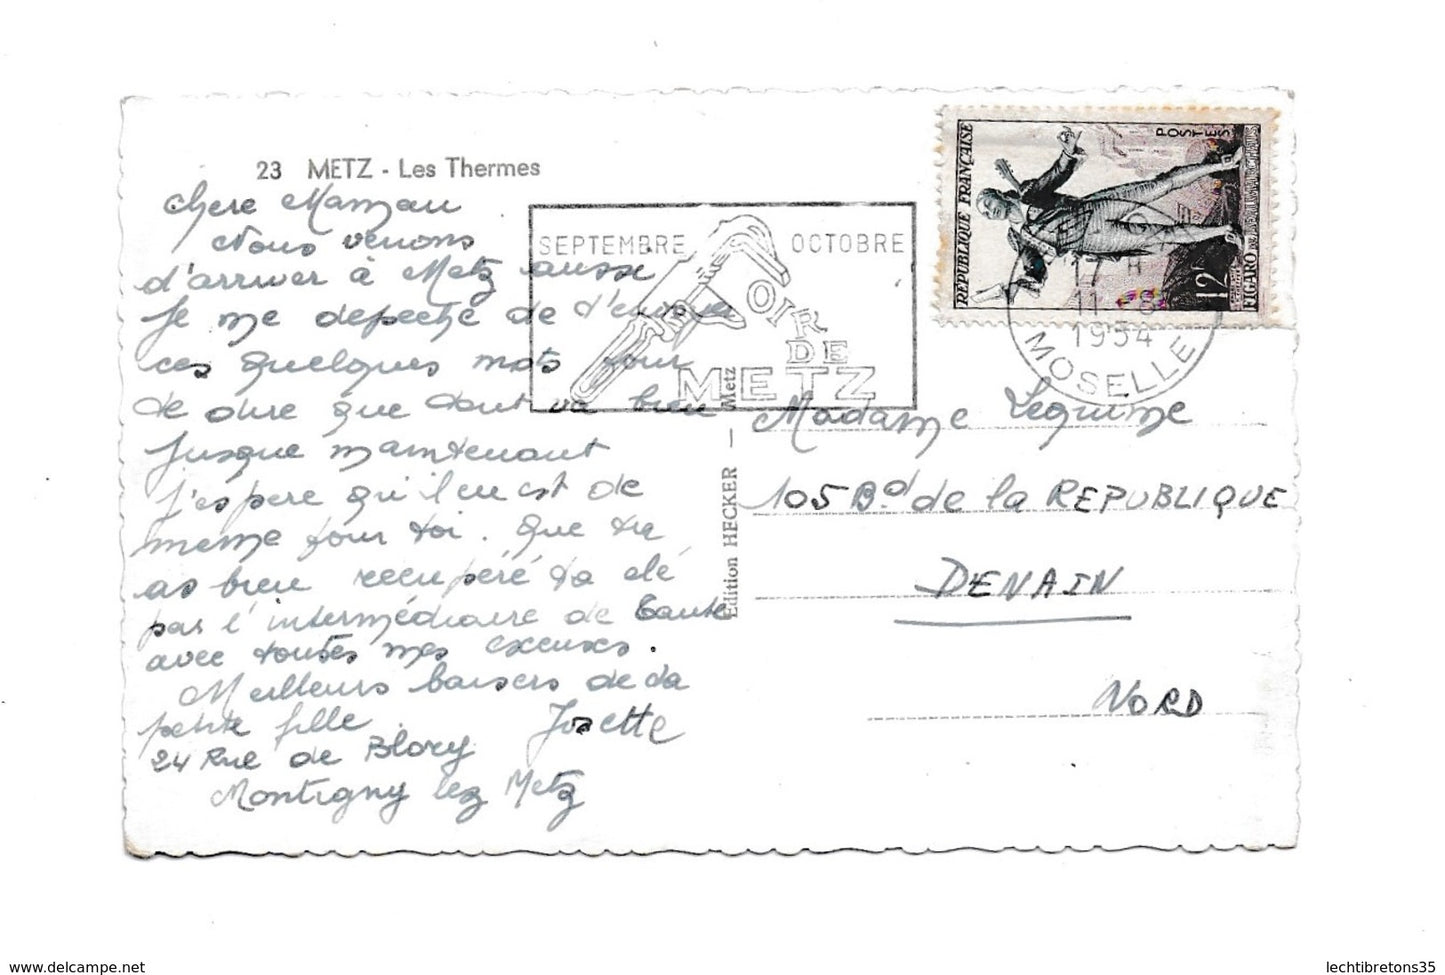 23 METZ - Les Thermes
chere Maman
Nous venons
d'arriver à Metz aussi
Je me depeche de d'envoyer
ces quelques mots pour
te dire que tout va bien
Jusque maintenant
J'espere qu'il en est de
meme pour toi. Que
as bien recupéré ta clé
par l'intermédiaire de Tante
avec toutes mes excuses.
Meilleurs baisers de ta
petite fille. Josette
24 Rue de Blory
Montigny lez Metz
SEPTEMBRE OCTOBRE
FOIRE
DE
METZ
Edition HECKER — Metz
RÉPUBLIQUE FRANÇAISE
POSTES
12F
FIGARO DE BEAUMARCHAIS
17 H
11 - 8
1954
MOSELLE
Madame
105 Bd. de la REPUBLIQUE
DENAIN
NORD
delcampe.net
lechtibretons35